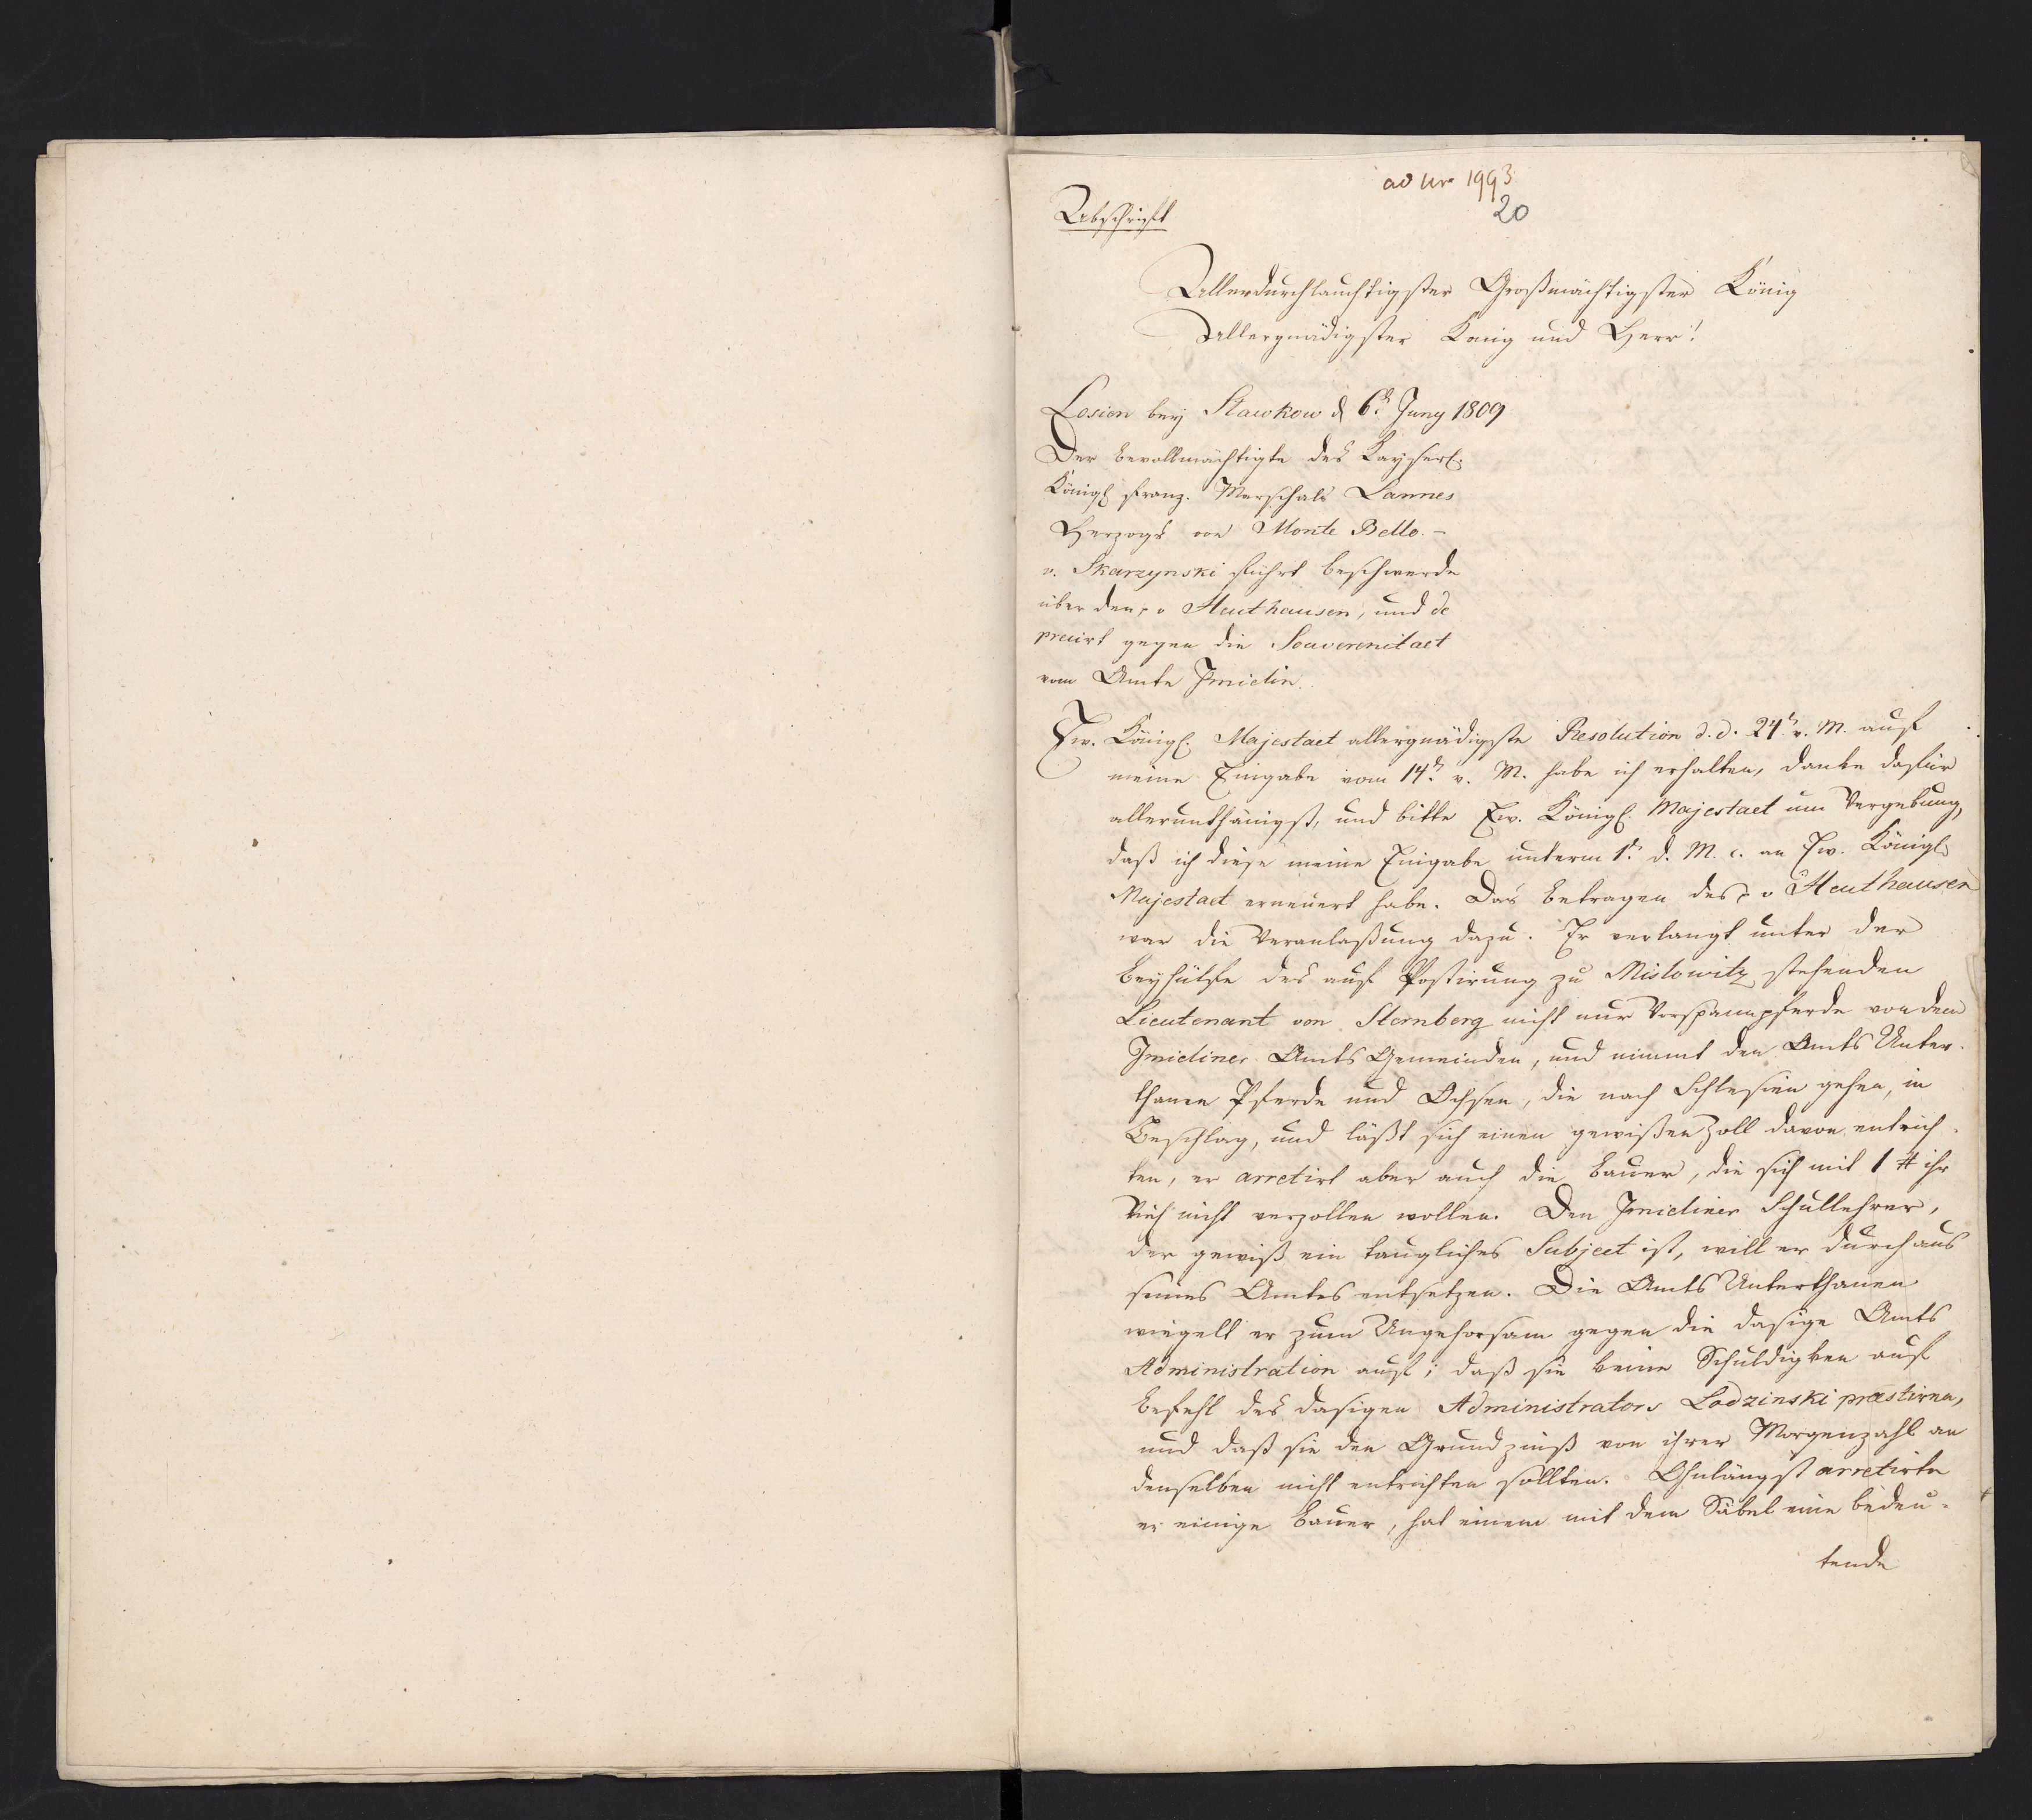 ad Nro 1993
20
Abschrift
Allerdurchlauchtigster Großmächtigster König
Allergnädigster König und Herr!
Losien bey Slawkow d 6t Juny 1809
Der bevollmächtigte des Kayserl.
Königl franz. Marschals Lannes
Herzogs von Monte Bello. –
v. Skarzynski führt beschwerde
über den p v Heuthausen, und de
precirt gegen die Souverenitaet
vom Amte Imielin.
Ew. Königl. Majestaet allergnädigste Resolution d. d. 24t v. M. auf
meine Eingabe vom 14t v. M. habe ich erhalten, danke dafür
allerunthänigst, und bitte Ew. Königl. Majestaet um Vergebung,
daß ich diese meine Eingabe unterm 1t d. M. c. an Ew. Königl
Majestaet erneuert habe. Das betragen des p v Heuthausen
war die Veranlaßung dazu. Er verlangt unter der
beyhülfe des auf Postirung zu Mislowitz stehenden
Lieutenant von Sternberg nicht nur Vorspannpferde von den
Imieliner Amts Gemeinden, und nimmt den Amts Unter-
thanen Pferde und Ochsen, die nach Schlesien gehen, in
Beschlag, und läßt sich einen gewißen Zoll davon entrich-
ten, er arretirt aber auch die bauer, die sich mit 1 # ihr
Vieh nicht verzollen wollen. Den Imieliner Schullehrer,
der gewiß ein taugliches Subject ist, will er durchaus
seines Amtes entsetzen. Die Amts Unterthanen
wiegelt er zum Ungehorsam gegen die dasige Amts
Administration auf; daß sie keine Schuldigken auf
befehl des dasigen Administrators Lodzinski præstiren,
und daß sie den Grundzinß von ihrer Morgenzahl an
denselben nicht entrichten sollten. Ohnlängst arretirte
er einige bauer, hat einem mit dem Säbel eine bedeu-
tende